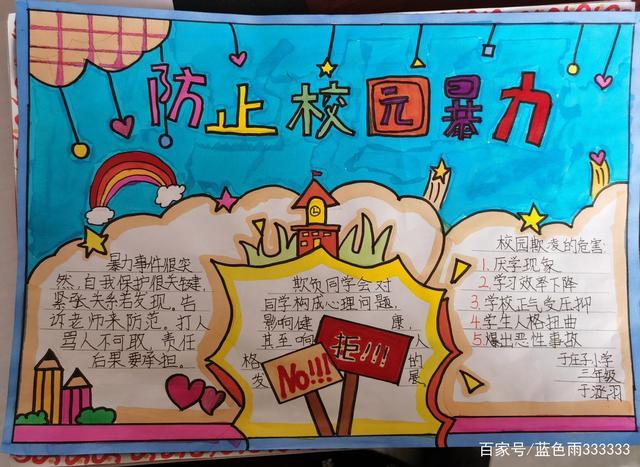 防止校园暴力
暴力事件很突
然,自我保护很关键,
紧张关系若发现。告
诉老师来防范。打人
骂人不可取,责任
后果要承担。
欺负同学会对
同学构成心理问题,
影响健 康,
甚至响 人
格 的
发 展
No!!!
拒!!!
校园欺凌的危害:
1.厌学现象
2.学习效率下降
3.学校正气受压抑
4.学生人格扭曲
5.爆出恶性事故
于庄子小学
三年级
百家号/蓝色雨333333